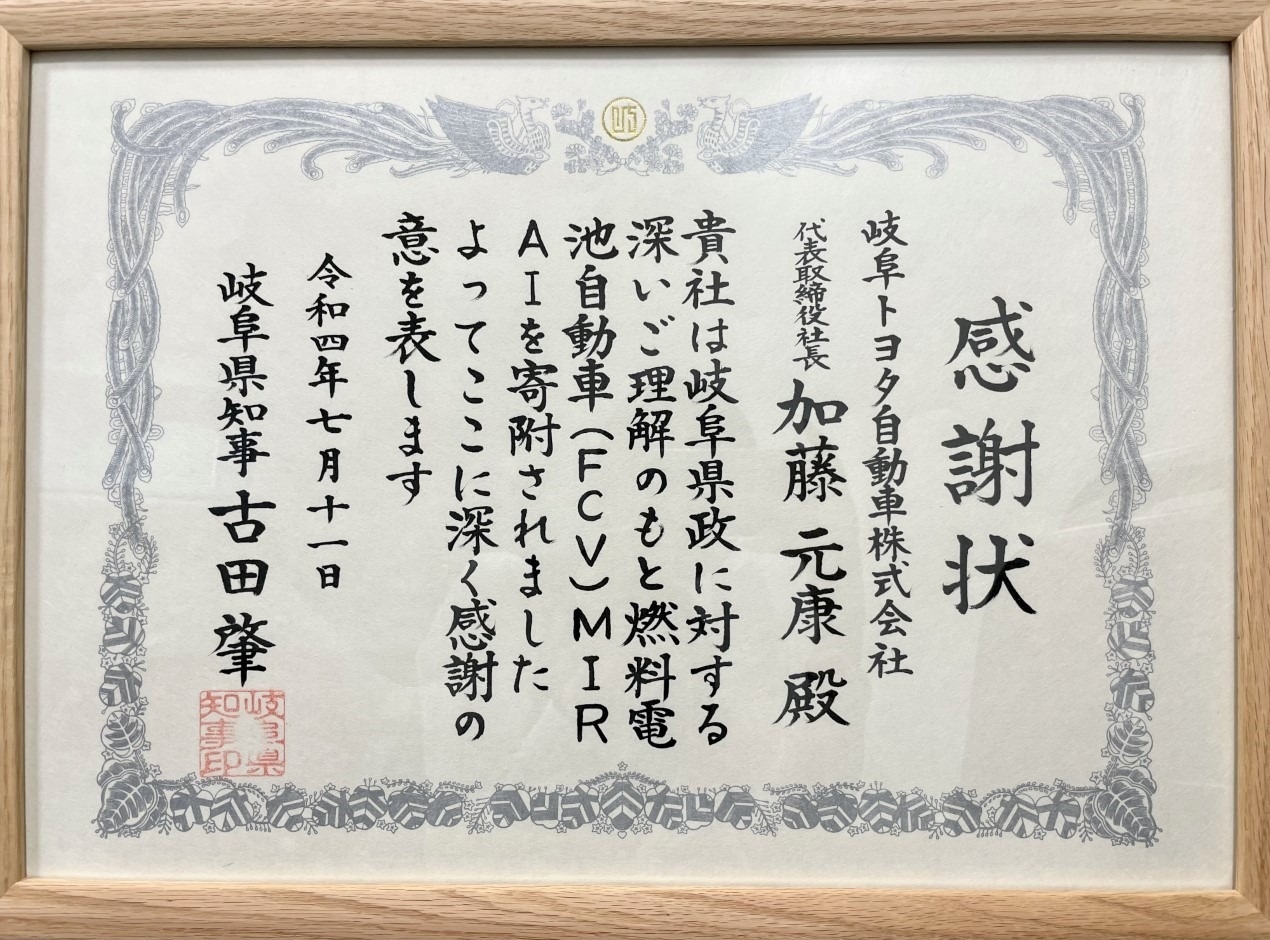 感謝状
岐阜トヨタ自動車株式会社
代表取締役社長 加藤 元康 殿
貴社は岐阜県政に対する
深いご理解のもと燃料電
池自動車(FCV)MIR
AIを寄附されました
よってここに深く感謝の
意を表します
令和四年七月十一日
岐阜県知事 古田 肇
岐阜県
知事印